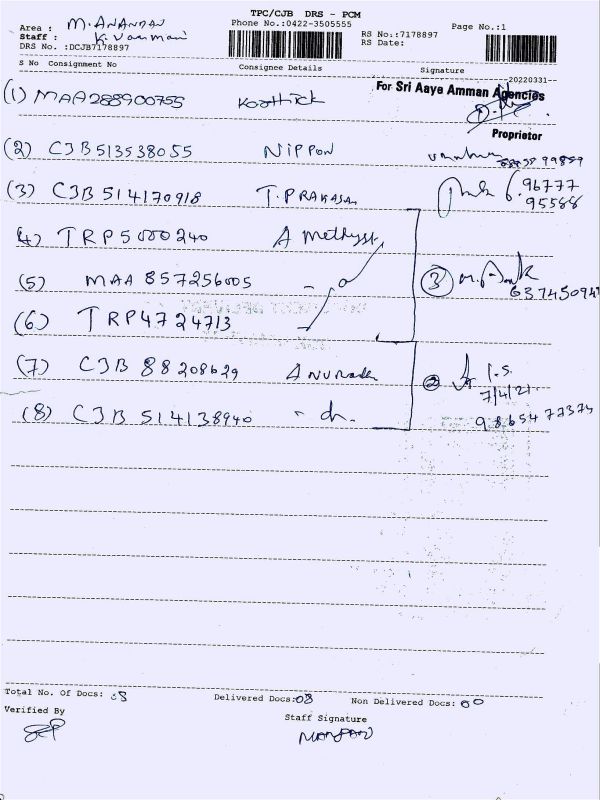 TPC/CJB DRS - PCM
Area : M.ANANDAN Phone No.:0422-3505555 Page No.:1
Staff : K. RS No.:7178897
DRS No. :DCJB7178897 RS Date:
S No Consignment No Consignee Details Signature
20220331--
(1) MAA288900755 Koathick For Sri Aaye Amman Agencies
Proprietor
(2) CJB513538055 NIPPON 99889
(3) CJB514170918 T.PRAKASAM 96777
95588
4) TRP5000240 A Methyst
(5) MAA 857256005 (3)
(6) TRP4724713
(7) CJB 88208629 I.S.
7/4/21
(8) CJB 514138940 - do. 9865477374
Total No. Of Docs: 08 Delivered Docs:08 Non Delivered Docs: 00
Verified By Staff Signature